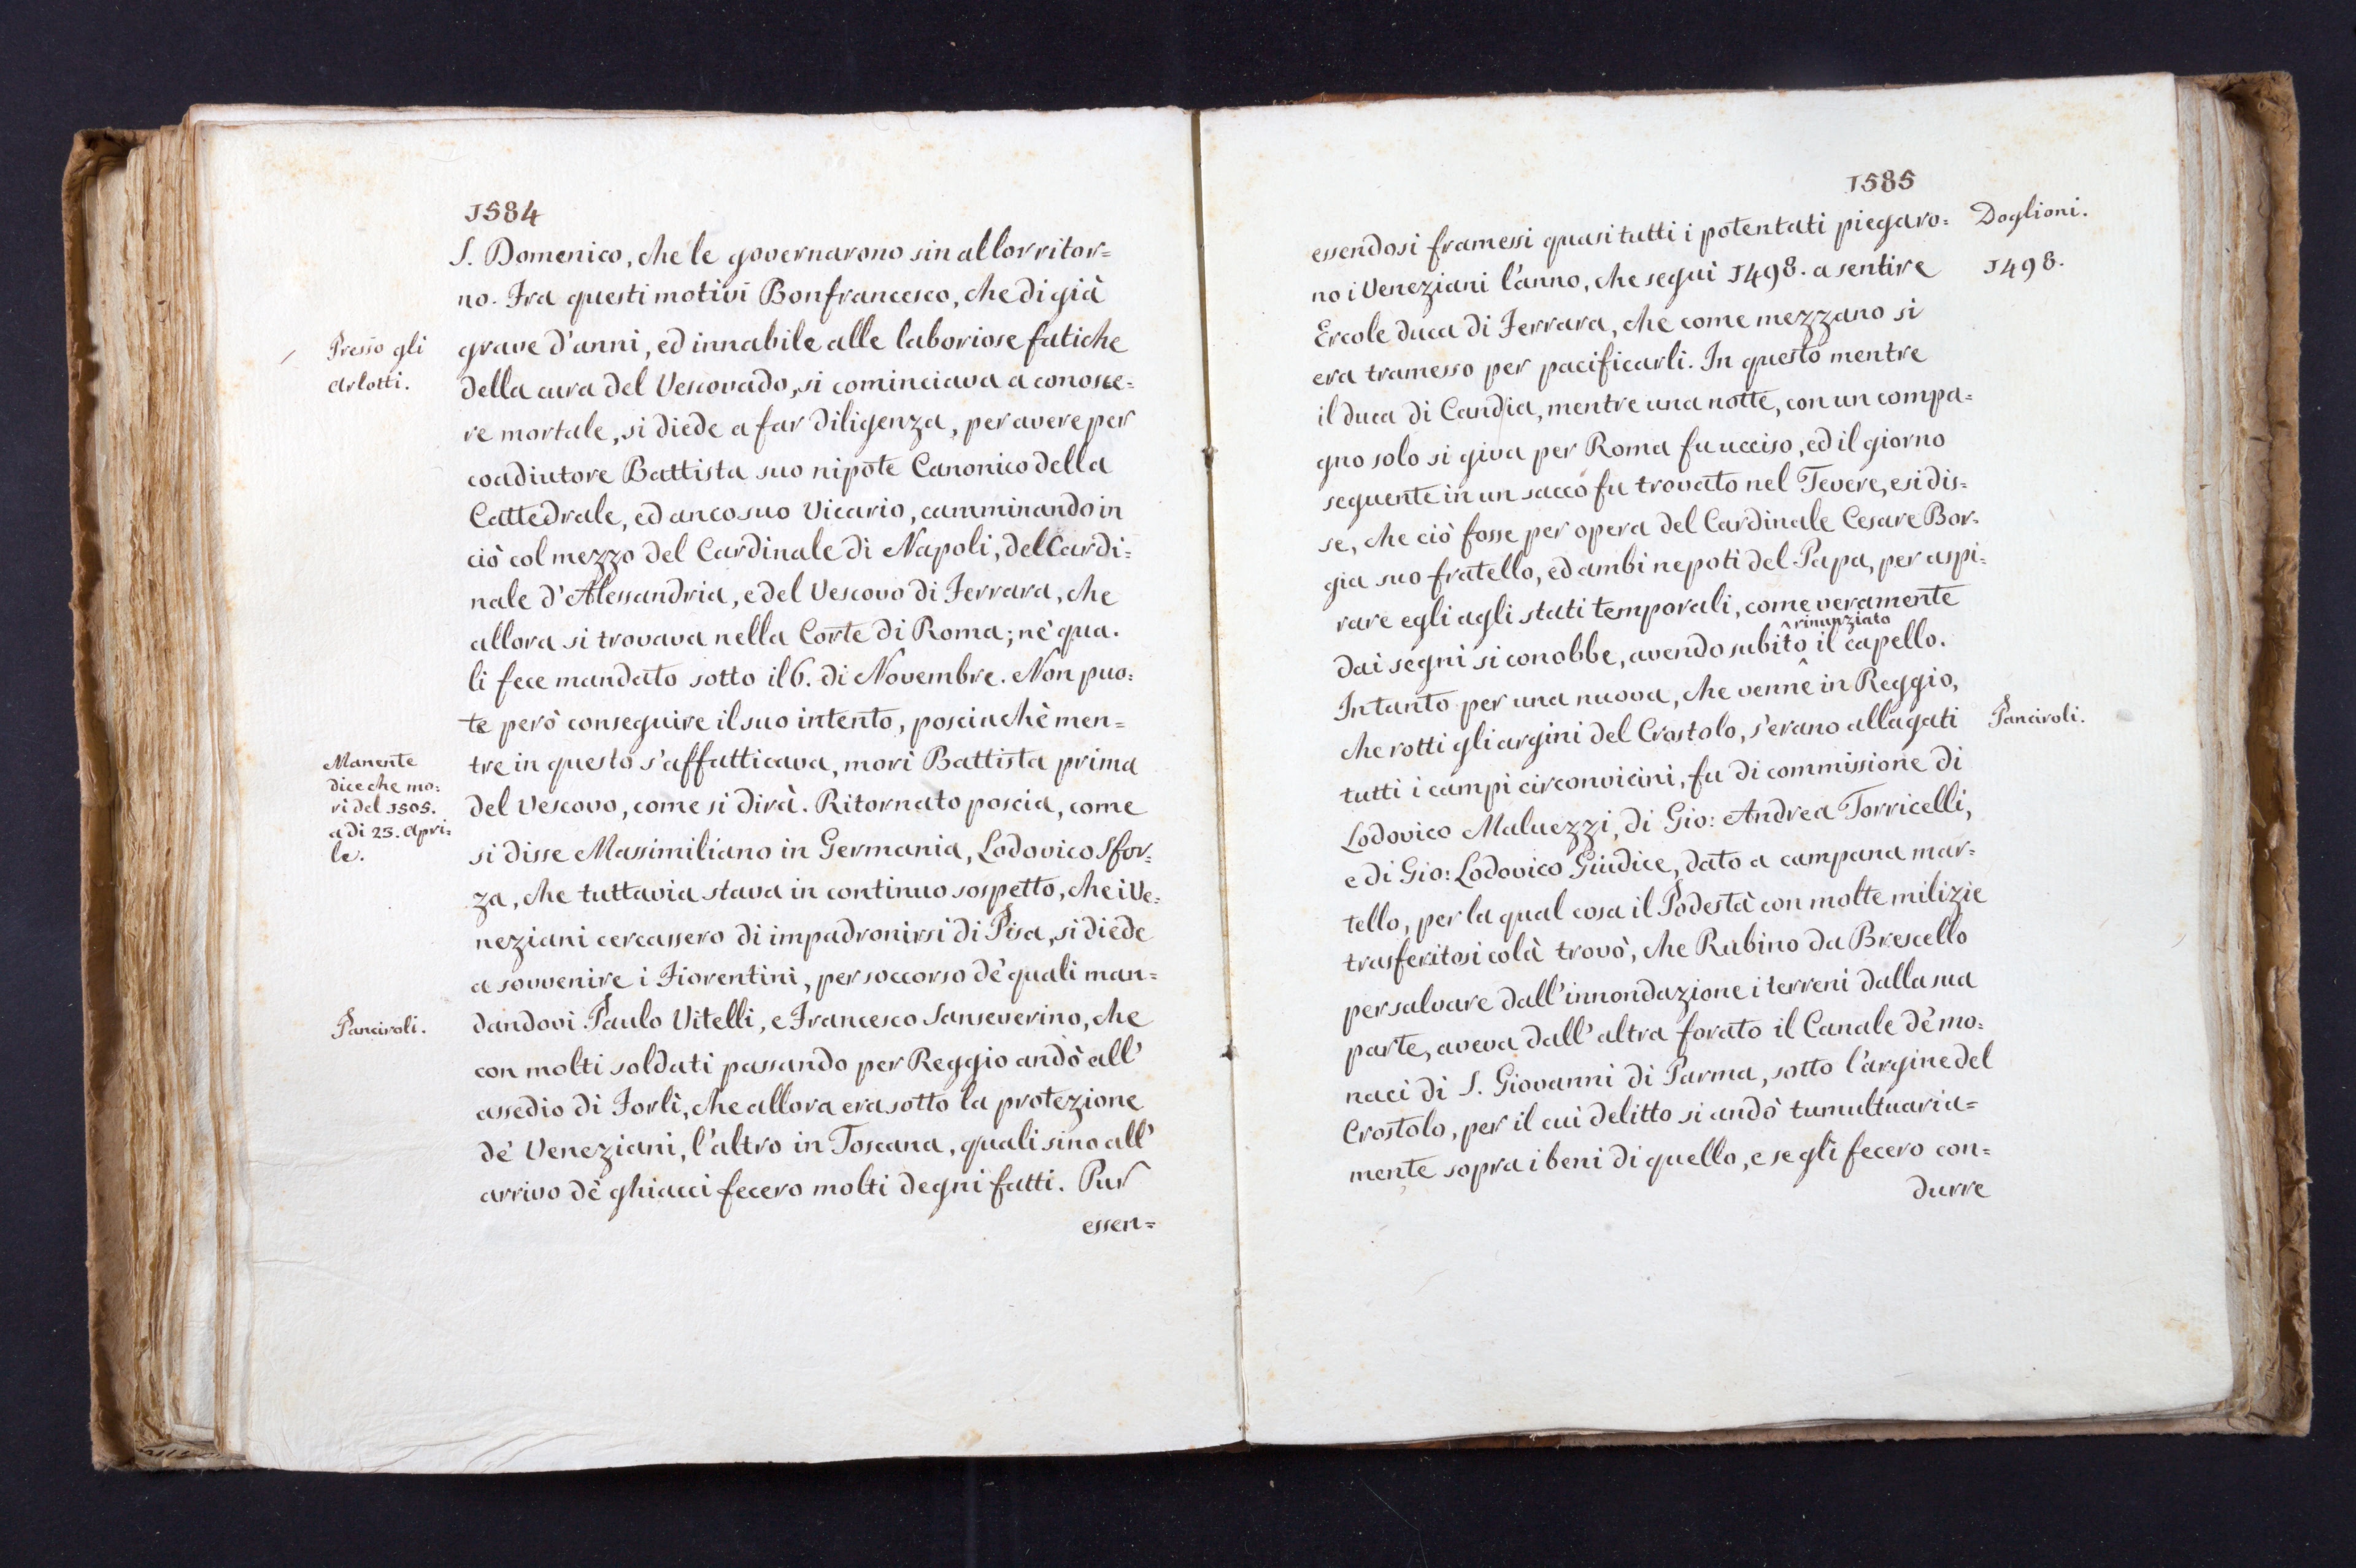 1584
S. Domenico, che le governarono sin al lor ritor=
no. Fra questi motivi Bonfrancesco, che di già
Presso gli
Arlotti.
grave d'anni, ed innabile alle laboriose fatiche
della cura del Vescovado, si cominciava a conosce=
re mortale, si diede a far diligenza, per avere per
coadiutore Battista suo nipote Canonico della
Cattedrale, ed anco suo Vicario, camminando in
ciò col mezzo del Cardinale di Napoli, del Cardi=
nale d'Alessandria, e del Vescovo di Ferrara, che
allora si trovava nella Corte di Roma; nè qua.
li fece mandato sotto il 6. di Novembre. Non puo=
te però conseguire il suo intento, posciachè men=
Manente
dice che mo=
rì del 1505.
a di 23. Apri=
le.
tre in questo s'affatticava, morì Battista prima
del Vescovo, come si dirà. Ritornato poscia, come
si disse Massimiliano in Germania, Lodovico Sfor=
za, che tuttavia stava in continuo sospetto, che i Ve=
neziani cercassero di impadronirsi di Pisa, si diede
a sovvenire i Fiorentini, per soccorso dè quali man=
Panciroli.
dandovi Paulo Vitelli, e Francesco Sanseverino, che
con molti soldati passando per Reggio andò all'
assedio di Forlì, che allora era sotto la protezione
dè Veneziani, l'altro in Toscana, quali sino all'
arrivo dè ghiacci fecero molti degni fatti. Pur
essen=
1585
essendosi framessi quasi tutti i potentati piegaro=
Doglioni.
no i Veneziani l'anno, che seguì 1498. a sentire
1498.
Ercole duca di Ferrara, che come mezzano si
era tramesso per pacificarli. In questo mentre
il duca di Candia, mentre una notte, con un compa=
gno solo si giva per Roma fu ucciso, ed il giorno
seguente in un sacco fu trovato nel Tevere, e si dis=
se, che ciò fosse per opera del Cardinale Cesare Bor=
gia suo fratello, ed ambi nepoti del Papa, per aspi=
rare egli agli stati temporali, come veramente
rinunziato
dai segni si conobbe, avendo subito il capello.
Intanto per una nuova, che venne in Reggio,
che rotti gli argini del Crostolo, s'erano allagati
Panciroli.
tutti i campi circonvicini, fu di commissione di
Lodovico Maluezzi, di Gio: Andrea Torricelli,
e di Gio: Lodovico Giudice, dato a campana mar=
tello, per la qual cosa il Podestà con molte milizie
trasferitosi colà trovò, che Rubino da Brescello
per salvare dall'innondazione i terreni dalla sua
parte, aveva dall'altra forato il Canale dè mo=
naci di S. Giovanni di Parma, sotto l'argine del
Crostolo, per il cui delitto si andò tumultuaria=
mente sopra i beni di quello, e se gli fecero con=
durre